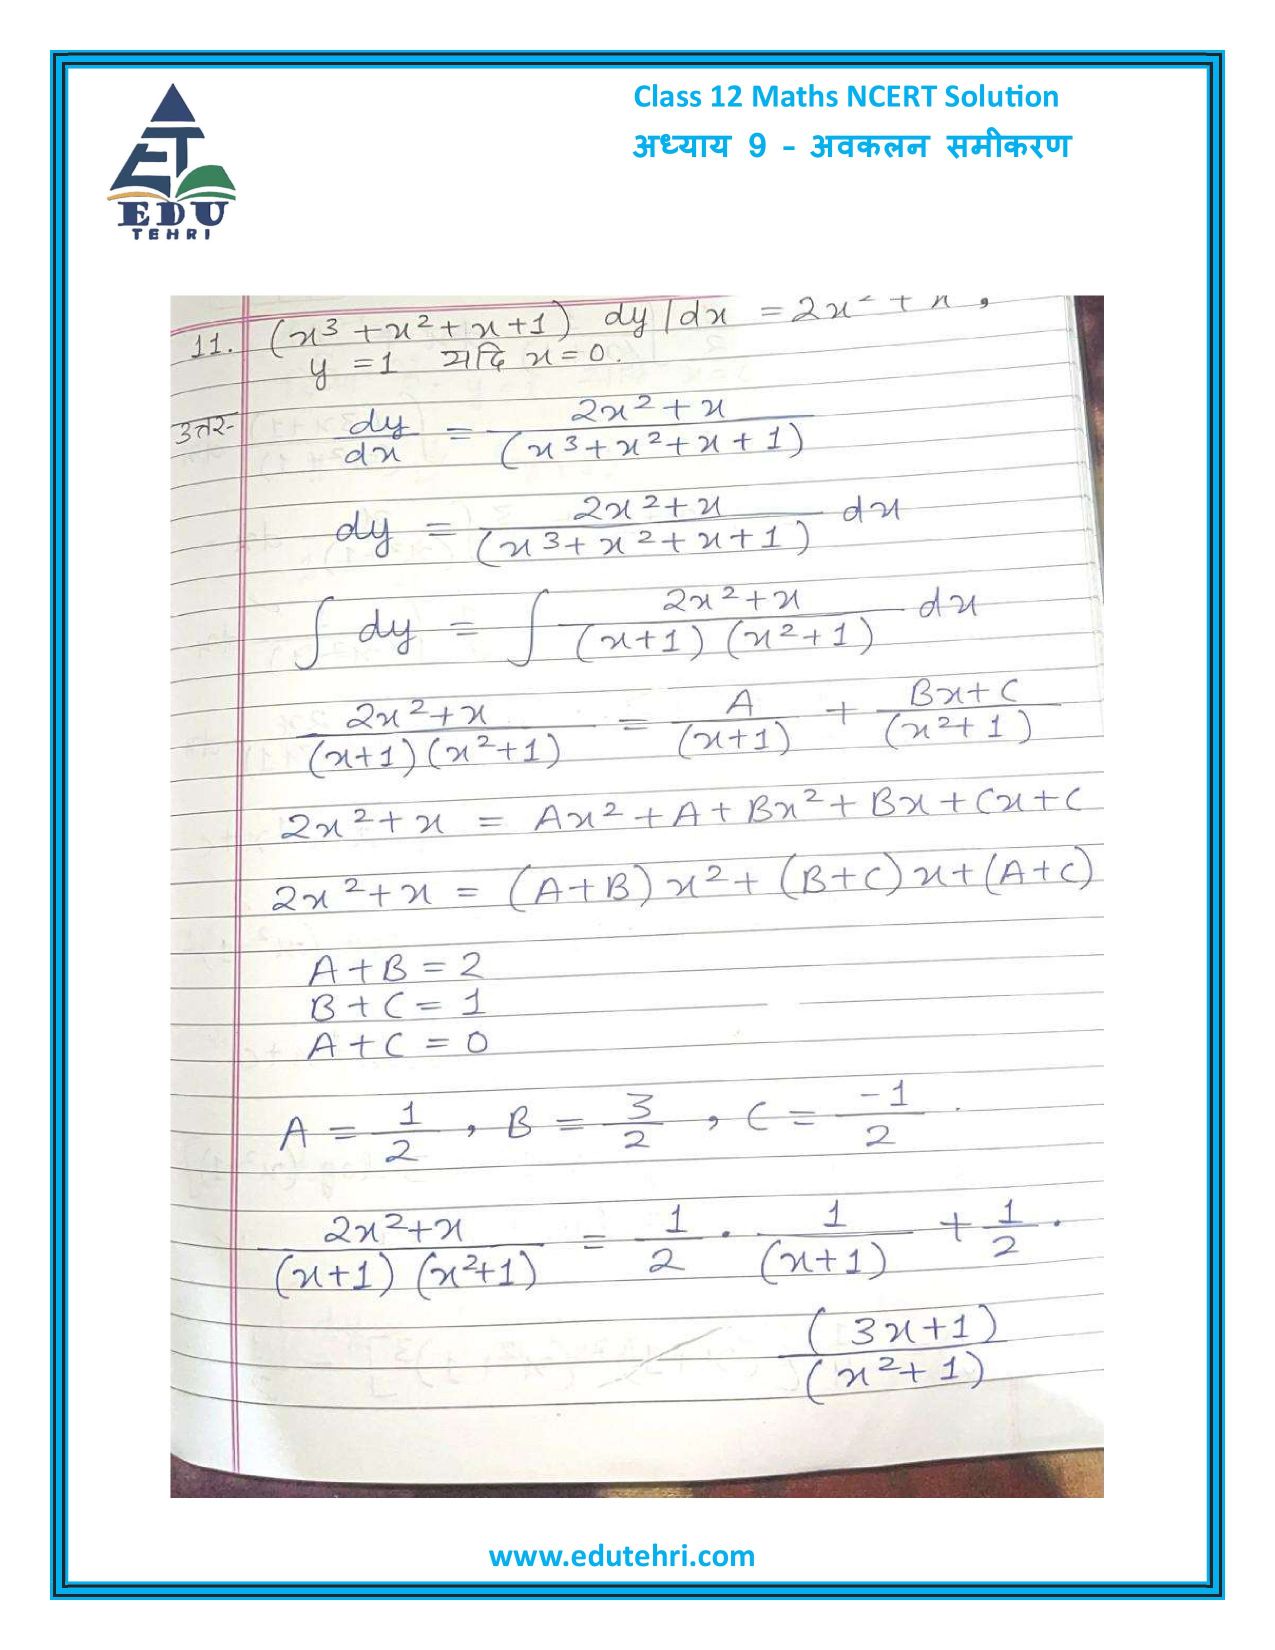 Class 12 Maths NCERT Solution
अध्याय 9 - अवकलन समीकरण
EDU
TEHRI
11. (x³ + x² + x + 1) dy/dx = 2x² + x,
y = 1 यदि x = 0.
उत्तर- dy/dx = (2x² + x)/(x³ + x² + x + 1)
dy = (2x² + x)/(x³ + x² + x + 1) dx
∫ dy = ∫ (2x² + x)/((x+1) (x² + 1)) dx
(2x² + x)/((x+1) (x² + 1)) = A/(x+1) + (Bx + C)/(x² + 1)
2x² + x = Ax² + A + Bx² + Bx + Cx + C
2x² + x = (A+B) x² + (B+C) x + (A+C)
A + B = 2
B + C = 1
A + C = 0
A = 1/2, B = 3/2, C = -1/2.
(2x² + x)/((x+1) (x²+1)) = 1/2 · 1/(x+1) + 1/2 ·
(3x+1)/(x² + 1)
www.edutehri.com